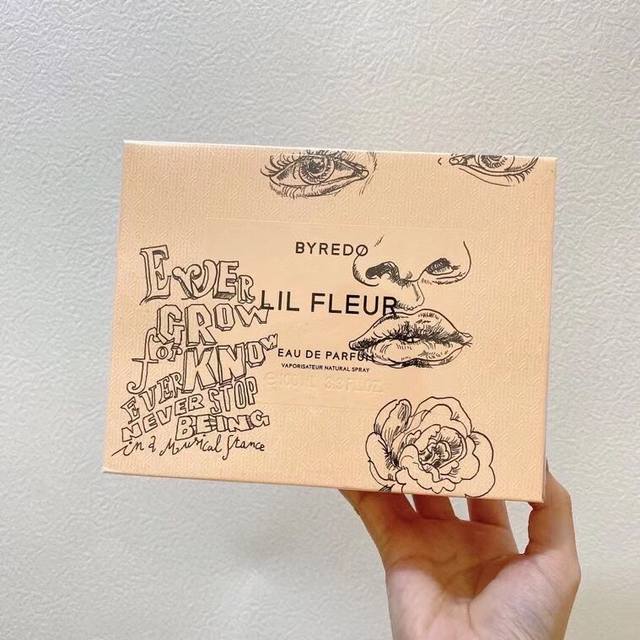 BYREDO
LIL FLEUR
EAU DE PARFUM
VAPORISATEUR NATURAL SPRAY
EVER
GROW
for KNOW
EVER
NEVER STOP
BEING
in a Musical Stance